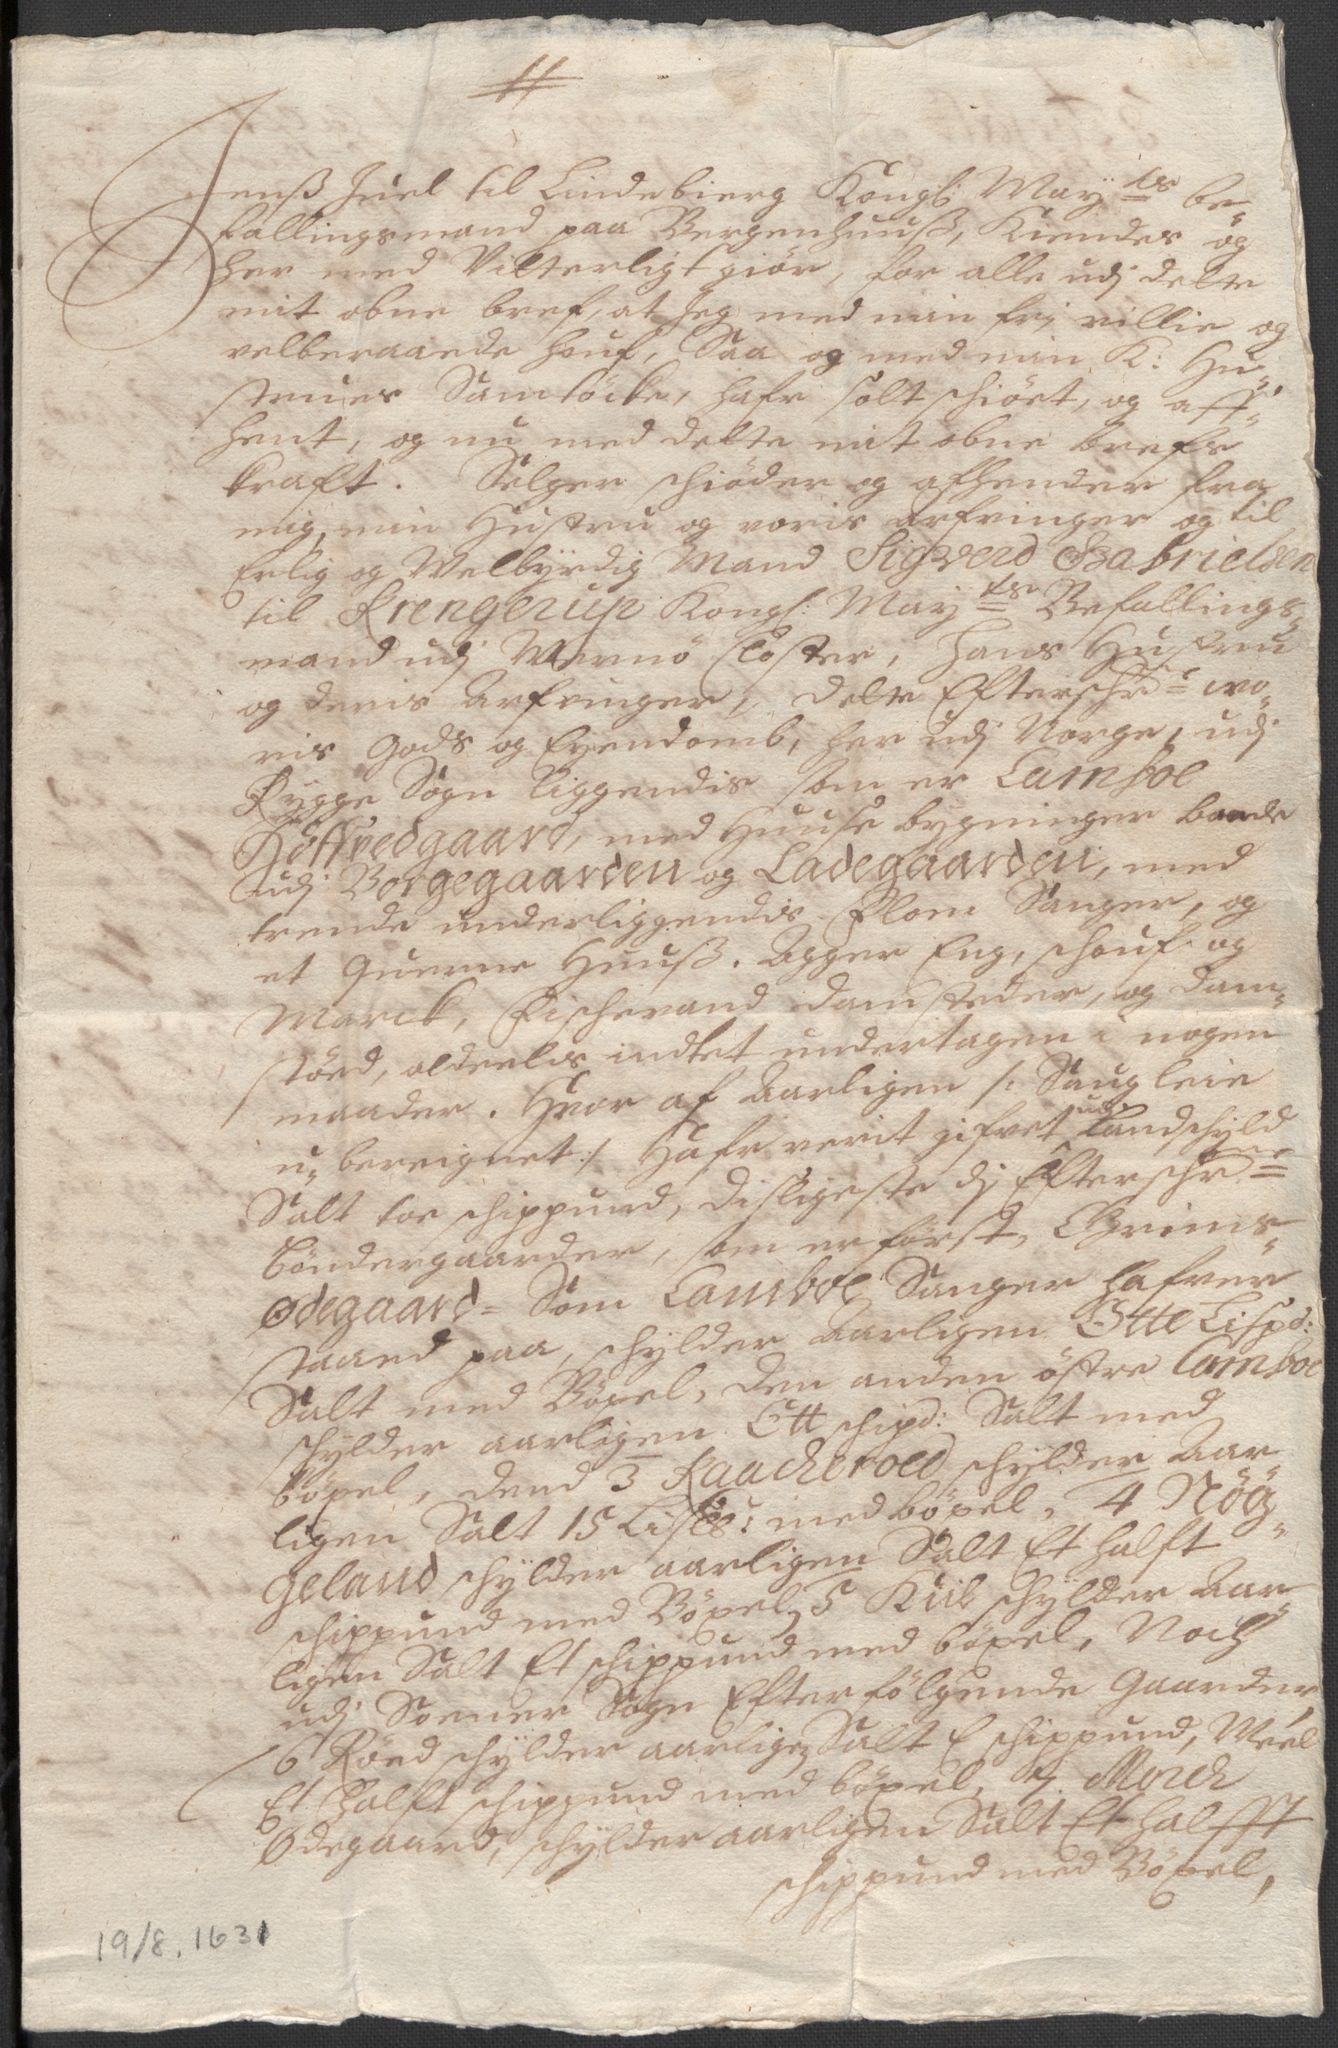 Jenß Juel til Lindebierg Kongl: Mayts be„
fallingsmand paa Bergenhuuß, Kiendes og
her med Vitterligt giör, for alle udj dette
mit obne bref, at Jeg med min frj villie og
velberaade houf, Saa og med min K: Hu„
strues Samtöcke, hafr solt schiöt, og aff„
hent, og nu med dette mit obne brefs
kraft. Selger schiöder og afhender fra
mig, min Hustru og voris arfvinger og til
Erlig og Welbyrdig Mand Sigverd Gabrielsen
til Krengerup Kongl: Mayts Befallings„
mand udj Wernö Closter, hans Hustru
og deris Arfvinger, dette Efterschr:ne wo„
ris Gods og Eyendomb, her udj Norge, udj
Rygge Sogn liggendis som er Camboe
Höffvedgaard, med Huuse bygninger baade
udj Borgegaarden og Ladegaarden, med
trende underliggendis Flom Sauger, og
et Querne Huuß. Agger Eng, schouf og
Marck, Fischevand damsteder, og dam„
stöed, aldeelis indtet undertagen i nogen
maader. Hvor af Aarligen /: Saugleie
u„bereignet :/ Hafr verit gifvet udj Landschyld
Salt toe schippund, disligeste dj Efterschr:ne
böndergaarder, som er först, Grims„
ødegaard= Som Camboe Sauger hafver
staaed paa, schylder Aarligen Otte Lispd:
Salt med Böxel, den anden östre Camboe
schylder aarligen Ett schipd: Salt med
böxel, dend 3 Raacheroed schylder Aar„
ligen Salt 15 Lispd: med böxel, 4 Nög„
geland schylder aarligen Salt Et halft
schippund med Böxel, 5 Kiil schylder Aar„
ligen Salt Et schippund med böxel, Noch
udj Soener Sogn Efterfölgende Gaarder,
6 Röed schylder aarligen Salt E schippund, Meel
Et halft schippund med böxel, 7. Morck
Odegaard, schylder aarligen Salt Et halfft
schippund med Böxel,
19/8. 1631